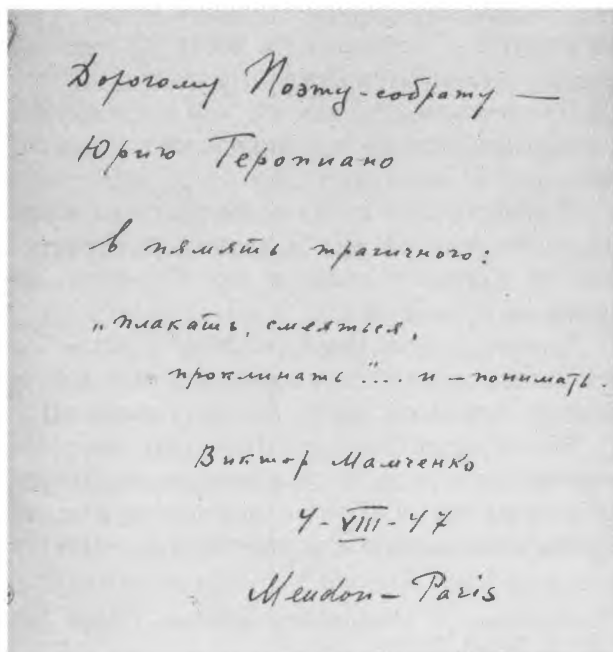 Дорогому Поэту-собрату —
Юрию Терапиано
в память трагичного:
„плакать, смеяться,
проклинать"... и — понимать.
Виктор Мамченко
4-VIII-47
Meudon — Paris